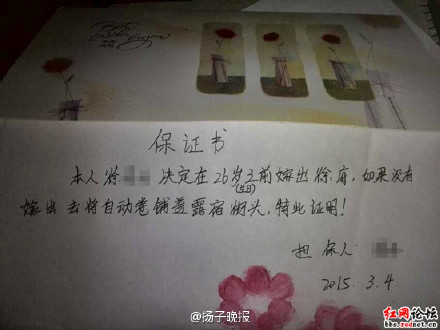 Best
保证书
本人徐 决定在26岁之前嫁出徐府,如果没有
(生日)
嫁出去将自动卷铺盖露宿街头,特此证明!
担保人:
2015.3.4
@扬子晚报
红网论坛
bbs.rednet.cn